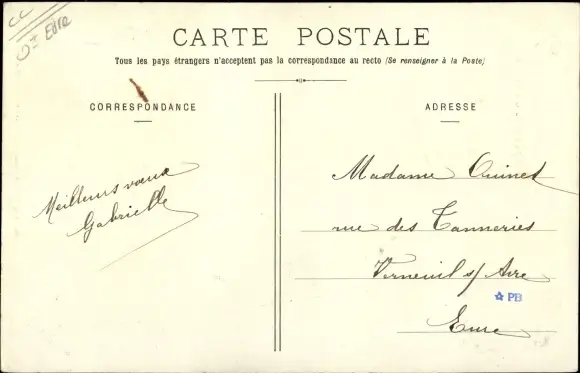 CC
Dt Eure
CARTE POSTALE
Tous les pays étrangers n'acceptent pas la correspondance au recto (Se renseigner à la Poste)
CORRESPONDANCE
ADRESSE
Meilleurs vœux
Gabrielle
Madame Guinet
rue des Tanneries
Verneuil s/ Avre
PB
Eure